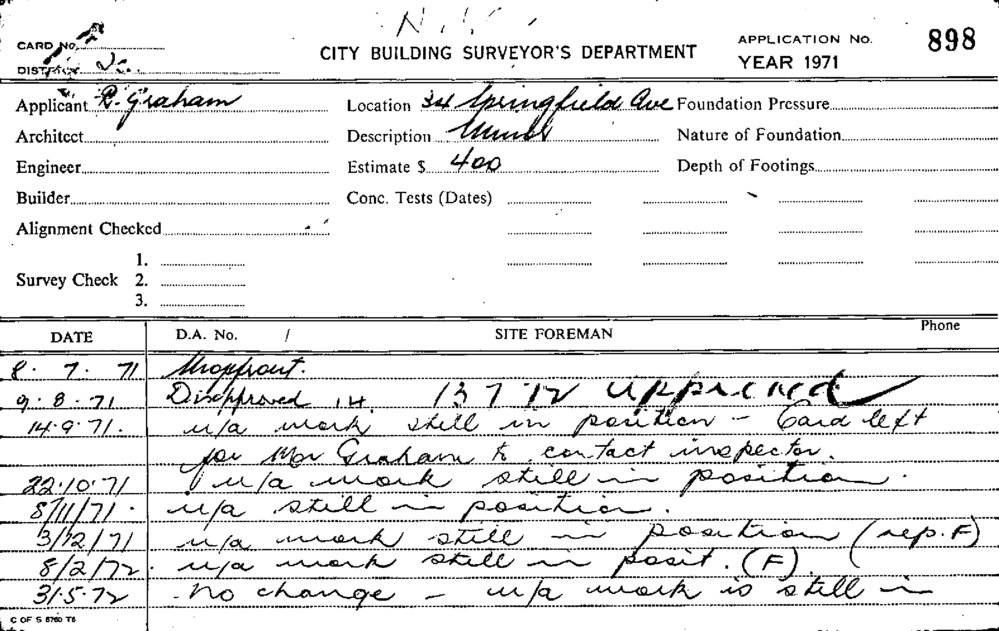 CARD No.
CITY BUILDING SURVEYOR'S DEPARTMENT
APPLICATION No. 898
DISTRICT
YEAR 1971
Applicant R. Graham Location 34 Springfield Ave Foundation Pressure
Architect Description Minor Nature of Foundation
Engineer Estimate $ 400 Depth of Footings
Builder Conc. Tests (Dates)
Alignment Checked
1.
Survey Check 2.
3.
DATE D.A. No. / SITE FOREMAN Phone
8. 7. 71
9.8.71 Disapproved 14. 13 7 72 approved
14.9.71. u/a work still in position - Card left
for Mr Graham to contact inspector.
22.10.71 u/a work still in position.
8/11/71. u/a still in position.
3/12/71 u/a work still in position (rep. F)
8/2/72. u/a work still in posit. (F).
31.5.72 No change - u/a work is still in
C OF S 8760 T8